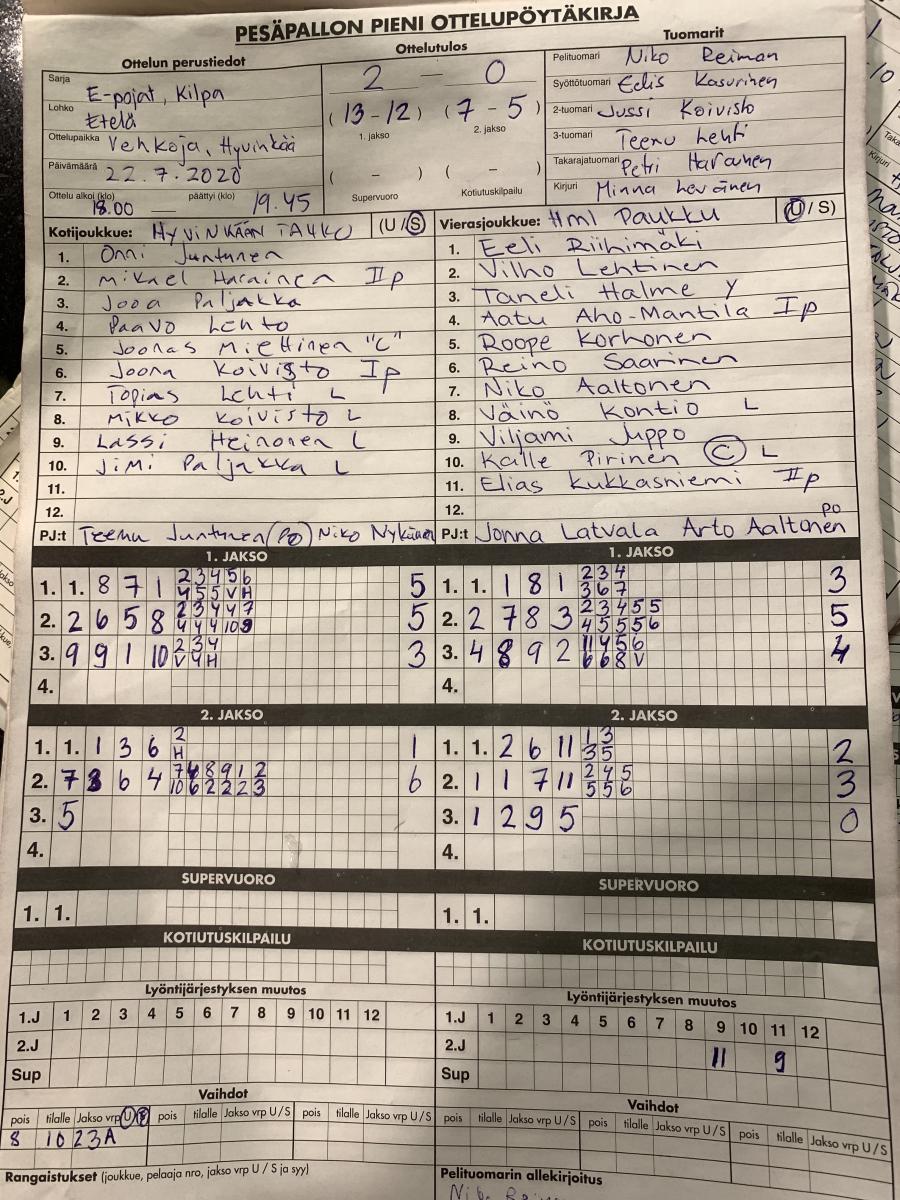 PESÄPALLON PIENI OTTELUPÖYTÄKIRJA
Ottelun perustiedot
Sarja E-pojat, Kilpa
Lohko Etelä
Ottelupaikka Vehkoja, Hyvinkää
Päivämäärä 22.7.2020
Ottelu alkoi (klo) 18.00 päättyi (klo) 19.45
Ottelutulos
2 — 0
(13-12) (7-5)
1. jakso 2. jakso
( - ) ( - )
Supervuoro Kotiutuskilpailu
Tuomarit
Pelituomari Niko Reiman
Syöttötuomari Eelis Kasurinen
2-tuomari Jussi Koivisto
3-tuomari Teemu Lehti
Takarajatuomari Petri Harainen
Kirjuri Minna Leväinen
Kotijoukkue: HYVINKÄÄN TAHKO (U/S)
1. Onni Juntunen
2. Mikael Harainen II p
3. Jooa Paljakka
4. Paavo Lehto
5. Joonas Miettinen "C"
6. Joona Koivisto I p
7. Topias Lehti L
8. Mikko Koivisto L
9. Lassi Heinonen L
10. Jimi Paljakka L
11.
12.
PJ:t Teemu Juntunen (PO) Niko Nykänen
Vierasjoukkue: Hml Paukku (U/S)
1. Eeli Riihimäki
2. Vilho Lehtinen
3. Taneli Halme Y
4. Aatu Aho-Mantila I p
5. Roope Korhonen
6. Reino Saarinen
7. Niko Aaltonen
8. Väinö Kontio L
9. Viljami Juppo
10. Kalle Pirinen C L
11. Elias Kukkasniemi II p
12.
PJ:t Jonna Latvala Arto Aaltonen PO
1. JAKSO
1. 1. 8 7 1 2 3 4 5 6 5
4 5 5 V H
2. 2 6 5 8 2 3 4 4 7 5
4 4 4 10 9
3. 9 9 1 10 2 3 4 3
V 4 H
4.
2. JAKSO
1. 1. 1 3 6 2 1
H
2. 7 3 6 4 7 4 8 9 1 2 6
10 6 2 2 2 3
3. 5
4.
SUPERVUORO
1. 1.
KOTIUTUSKILPAILU
Lyöntijärjestyksen muutos
1.J 1 2 3 4 5 6 7 8 9 10 11 12
2.J
Sup
Vaihdot
pois tilalle Jakso vrp U/S pois tilalle Jakso vrp U/S pois tilalle Jakso vrp U/S
8 10 2 3A
Rangaistukset (joukkue, pelaaja nro, jakso vrp U / S ja syy)
1. JAKSO
1. 1. 1 8 1 2 3 4 3
3 6 7
2. 2 7 8 3 2 3 4 5 5 5
4 5 5 5 6
3. 4 8 9 2 11 4 5 6 4
6 6 8 V
4.
2. JAKSO
1. 1. 2 6 11 1 3 2
3 5
2. 1 1 7 11 2 4 5 3
5 5 6
3. 1 2 9 5 0
4.
SUPERVUORO
1. 1.
KOTIUTUSKILPAILU
Lyöntijärjestyksen muutos
1.J 1 2 3 4 5 6 7 8 9 10 11 12
2.J 11 9
Sup
Vaihdot
pois tilalle Jakso vrp U/S pois tilalle Jakso vrp U/S pois tilalle Jakso vrp U/S
Pelituomarin allekirjoitus